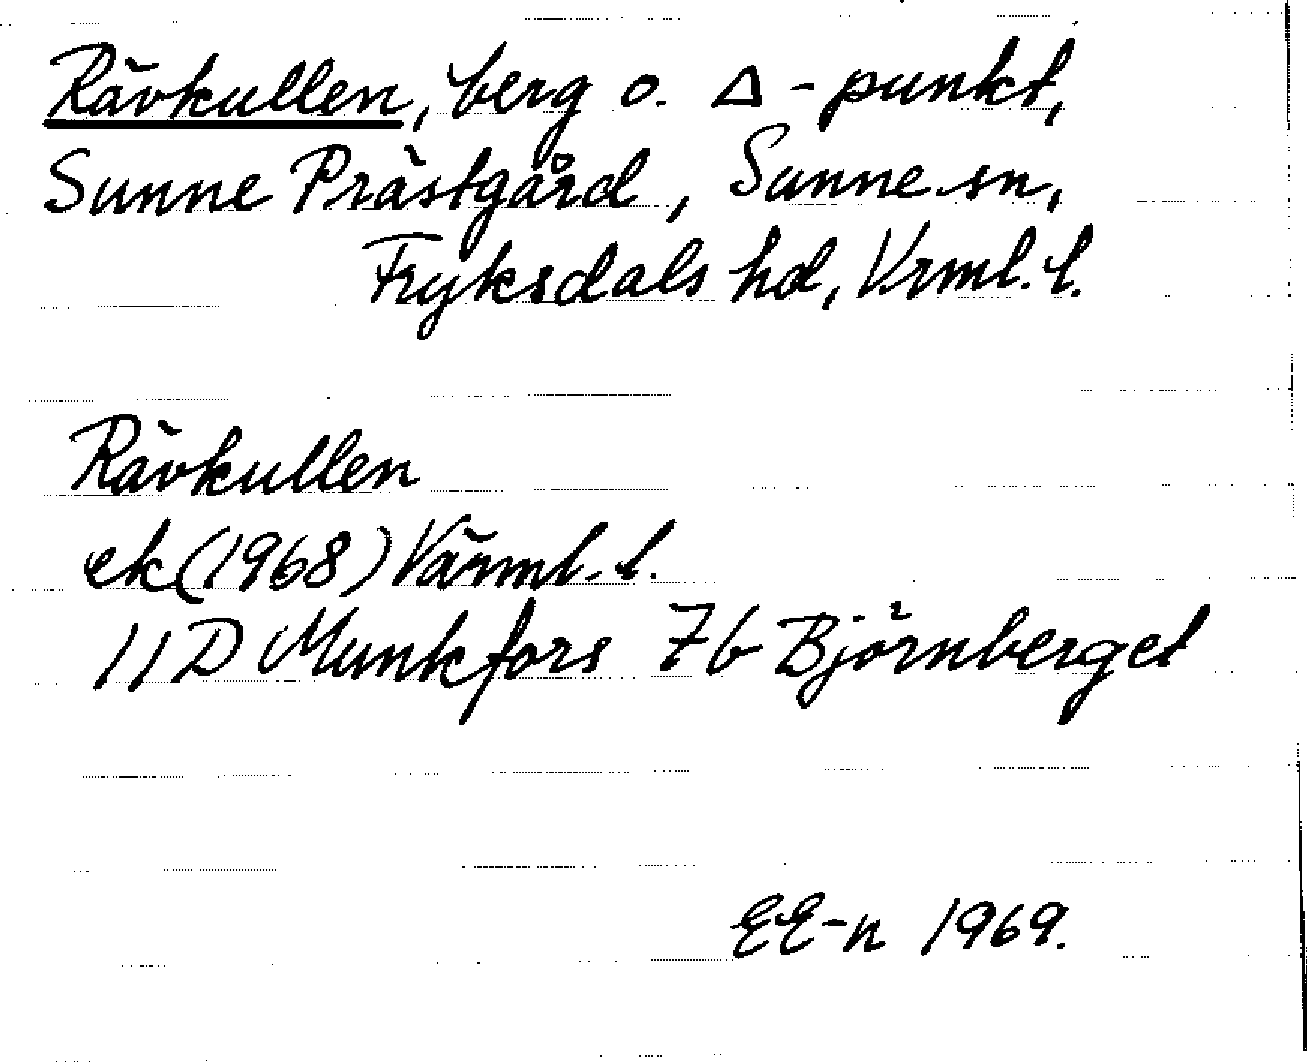 Rävkullen, berg o. Δ-punkt,
Sunne Prästgård, Sunne sn,
Fryksdals hd, Vrml. l.
Rävkullen
ek (1968) Värml. l.
11D Munkfors 7b Björnberget
EE-n 1969.